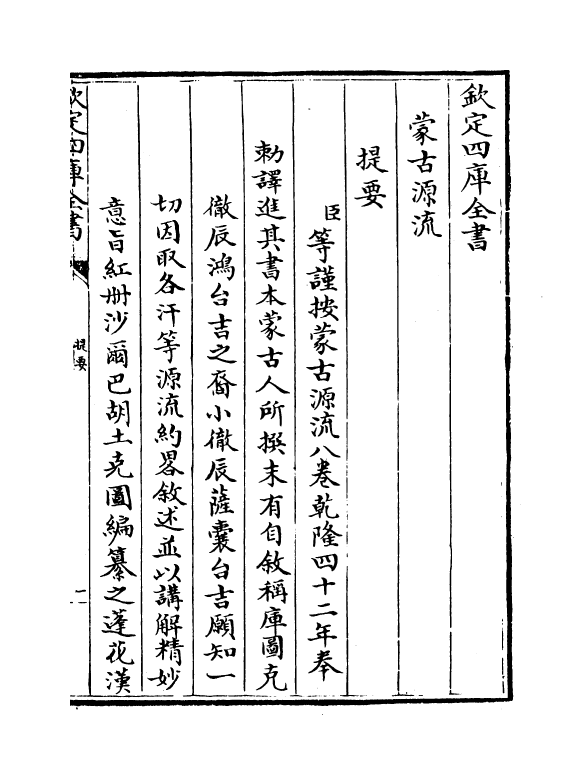 欽定四庫全書
蒙古源流
提要
臣等謹按蒙古源流八卷乾隆四十二年奉
勅譯進其書本蒙古人所撰末有自敘稱庫圖克
徹辰鴻台吉之裔小徹辰薩囊台吉願知一
切因取各汗等源流約畧敘述並以講解精妙
意旨紅冊沙爾巴胡土克圖編纂之蓬花漢
欽定四庫全書
提要